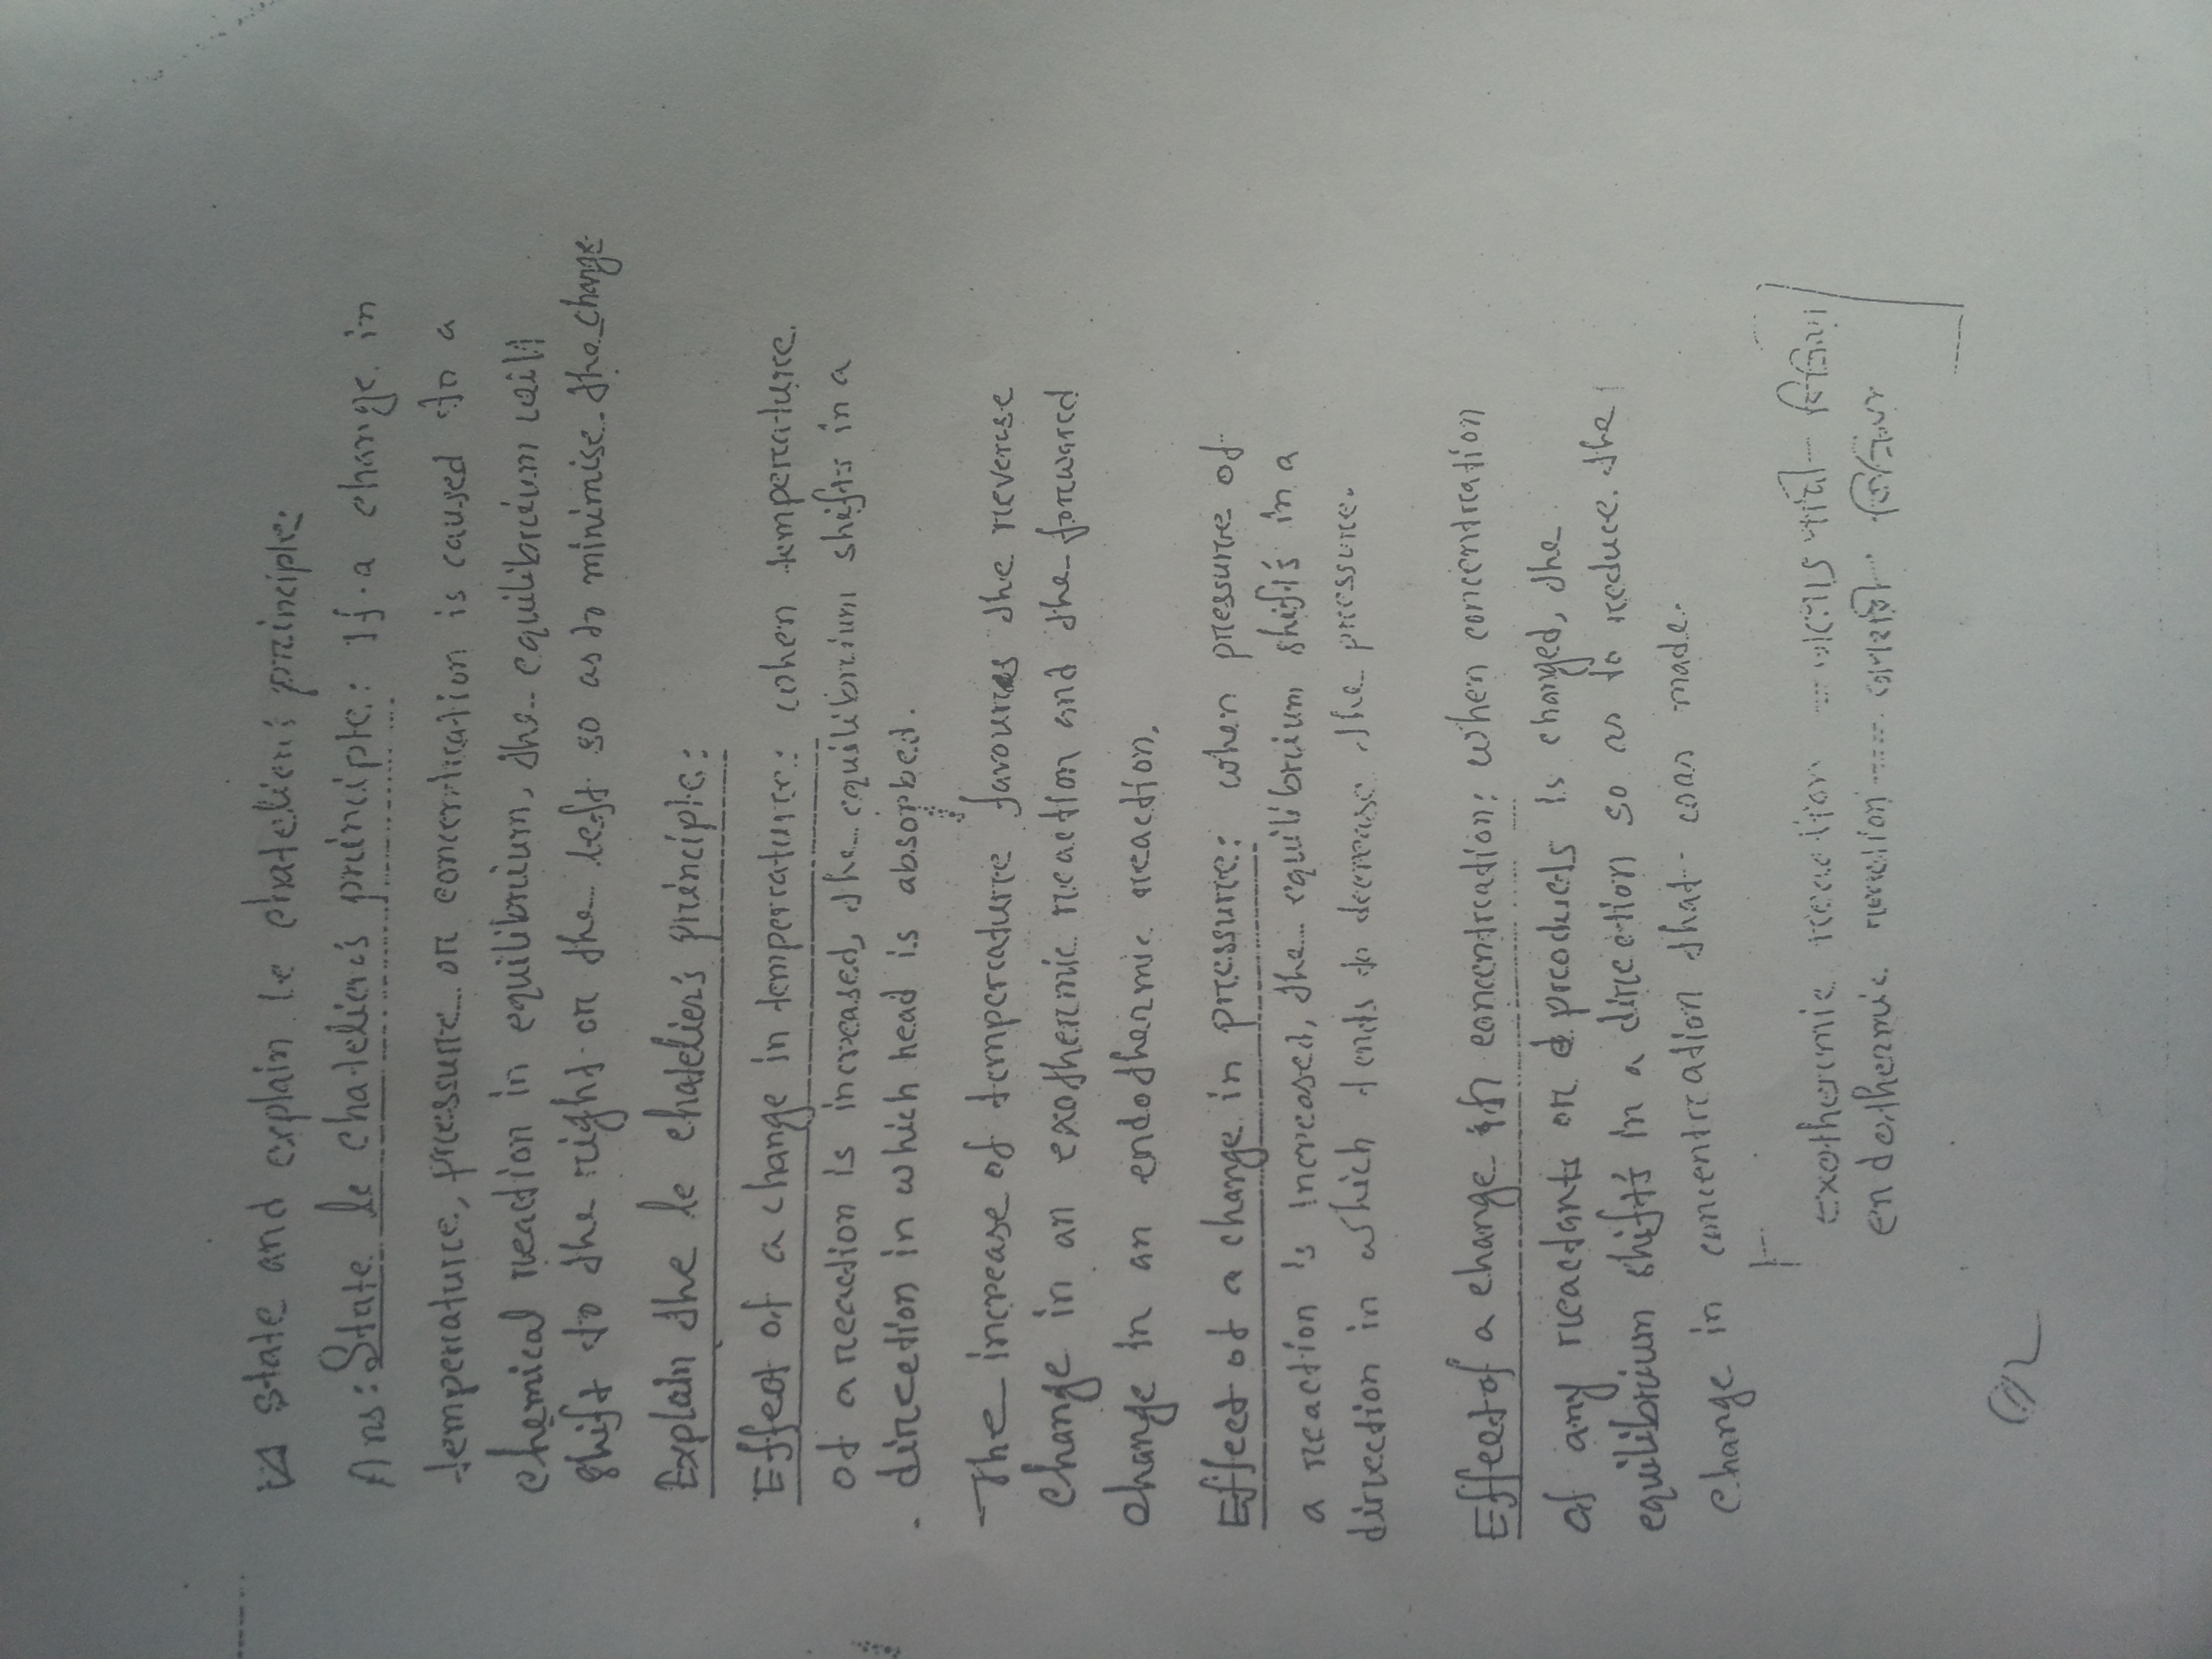 State and explain le chatelier's principle:
Ans: State le chatelier's principle: If a change in
temperature, pressure or concentration is caused to a
chemical reaction in equilibrium, the equilibrium will
shift to the right or the left so as to minimise the change
Explain the le chatelier's principle:
Effect of a change in temperature: when temperature
of a reaction is increased, the equilibrium shifts in a
direction in which head is absorbed.
The increase of temperature favoures the reverse
change in an exothermic reaction and the forward
change in an endothermic reaction.
Effect of a change in pressure: when pressure of
a reaction is increased, the equilibrium shift's in a
direction in which tends to decrease the pressure.
Effect of a change in concentration: when concentration
of any reactants or products is changed, the
equilibrium shift's in a direction so as to reduce the
change in concentration that was made.
exothermic reaction
endothermic reaction